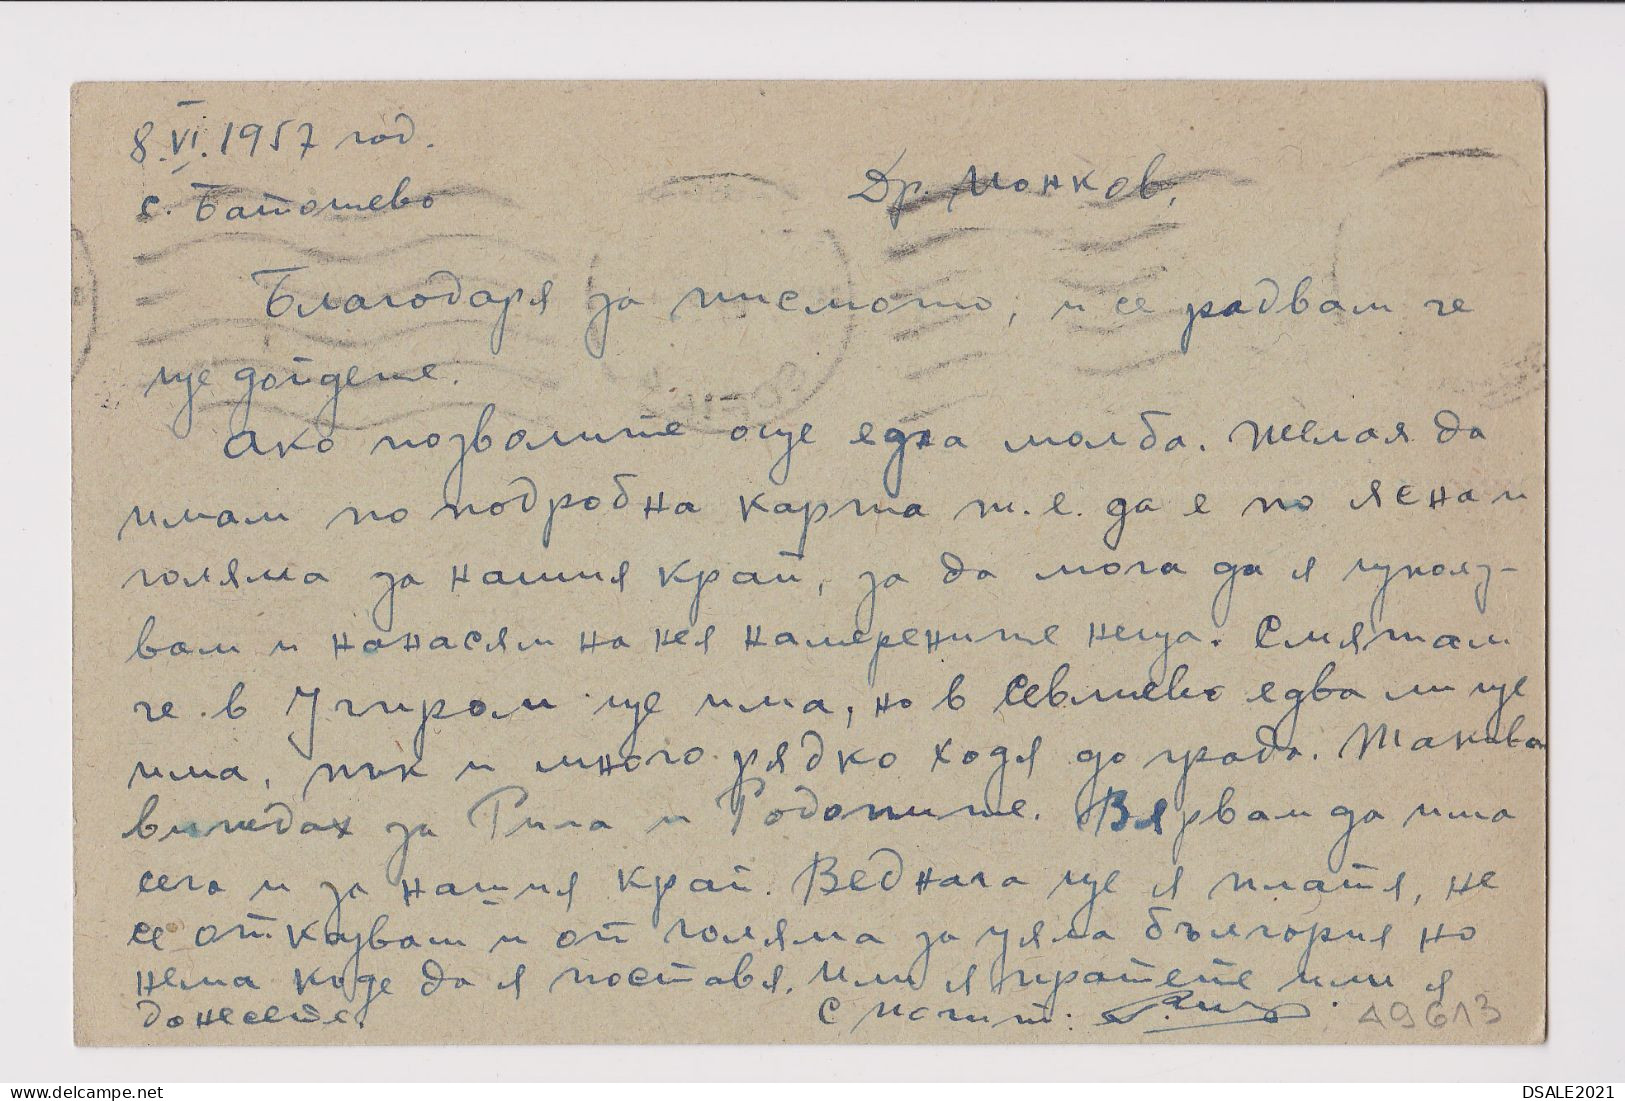 8.VI.1957 год.
с. Батошево
Др. Монков,
Благодаря за писмото, и се радвам че
ще дойдете.
Ако позволите още една молба. Желая да
имам по подробна карта т. е. да е по ясна и
голяма за нашия край, за да мога да я
вам и нанасям на нея намерените неща. Смятам
че в ще има, но в Севлиево едва ли ще
има, пък и много рядко ходя до града. Такива
виждах за Рила и Родопите. Вярвам да има
сега и за нашия край. Веднага ще я платя, не
се отказвам и от голяма за цяла България но
нема къде да я поставя. Или я пратете или я
донесете.
С почит:
A9613
delcampe.net
DSALE2021